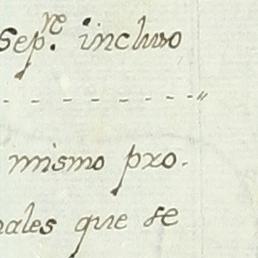 Sep.re incluso
mismo pro-
ales que se